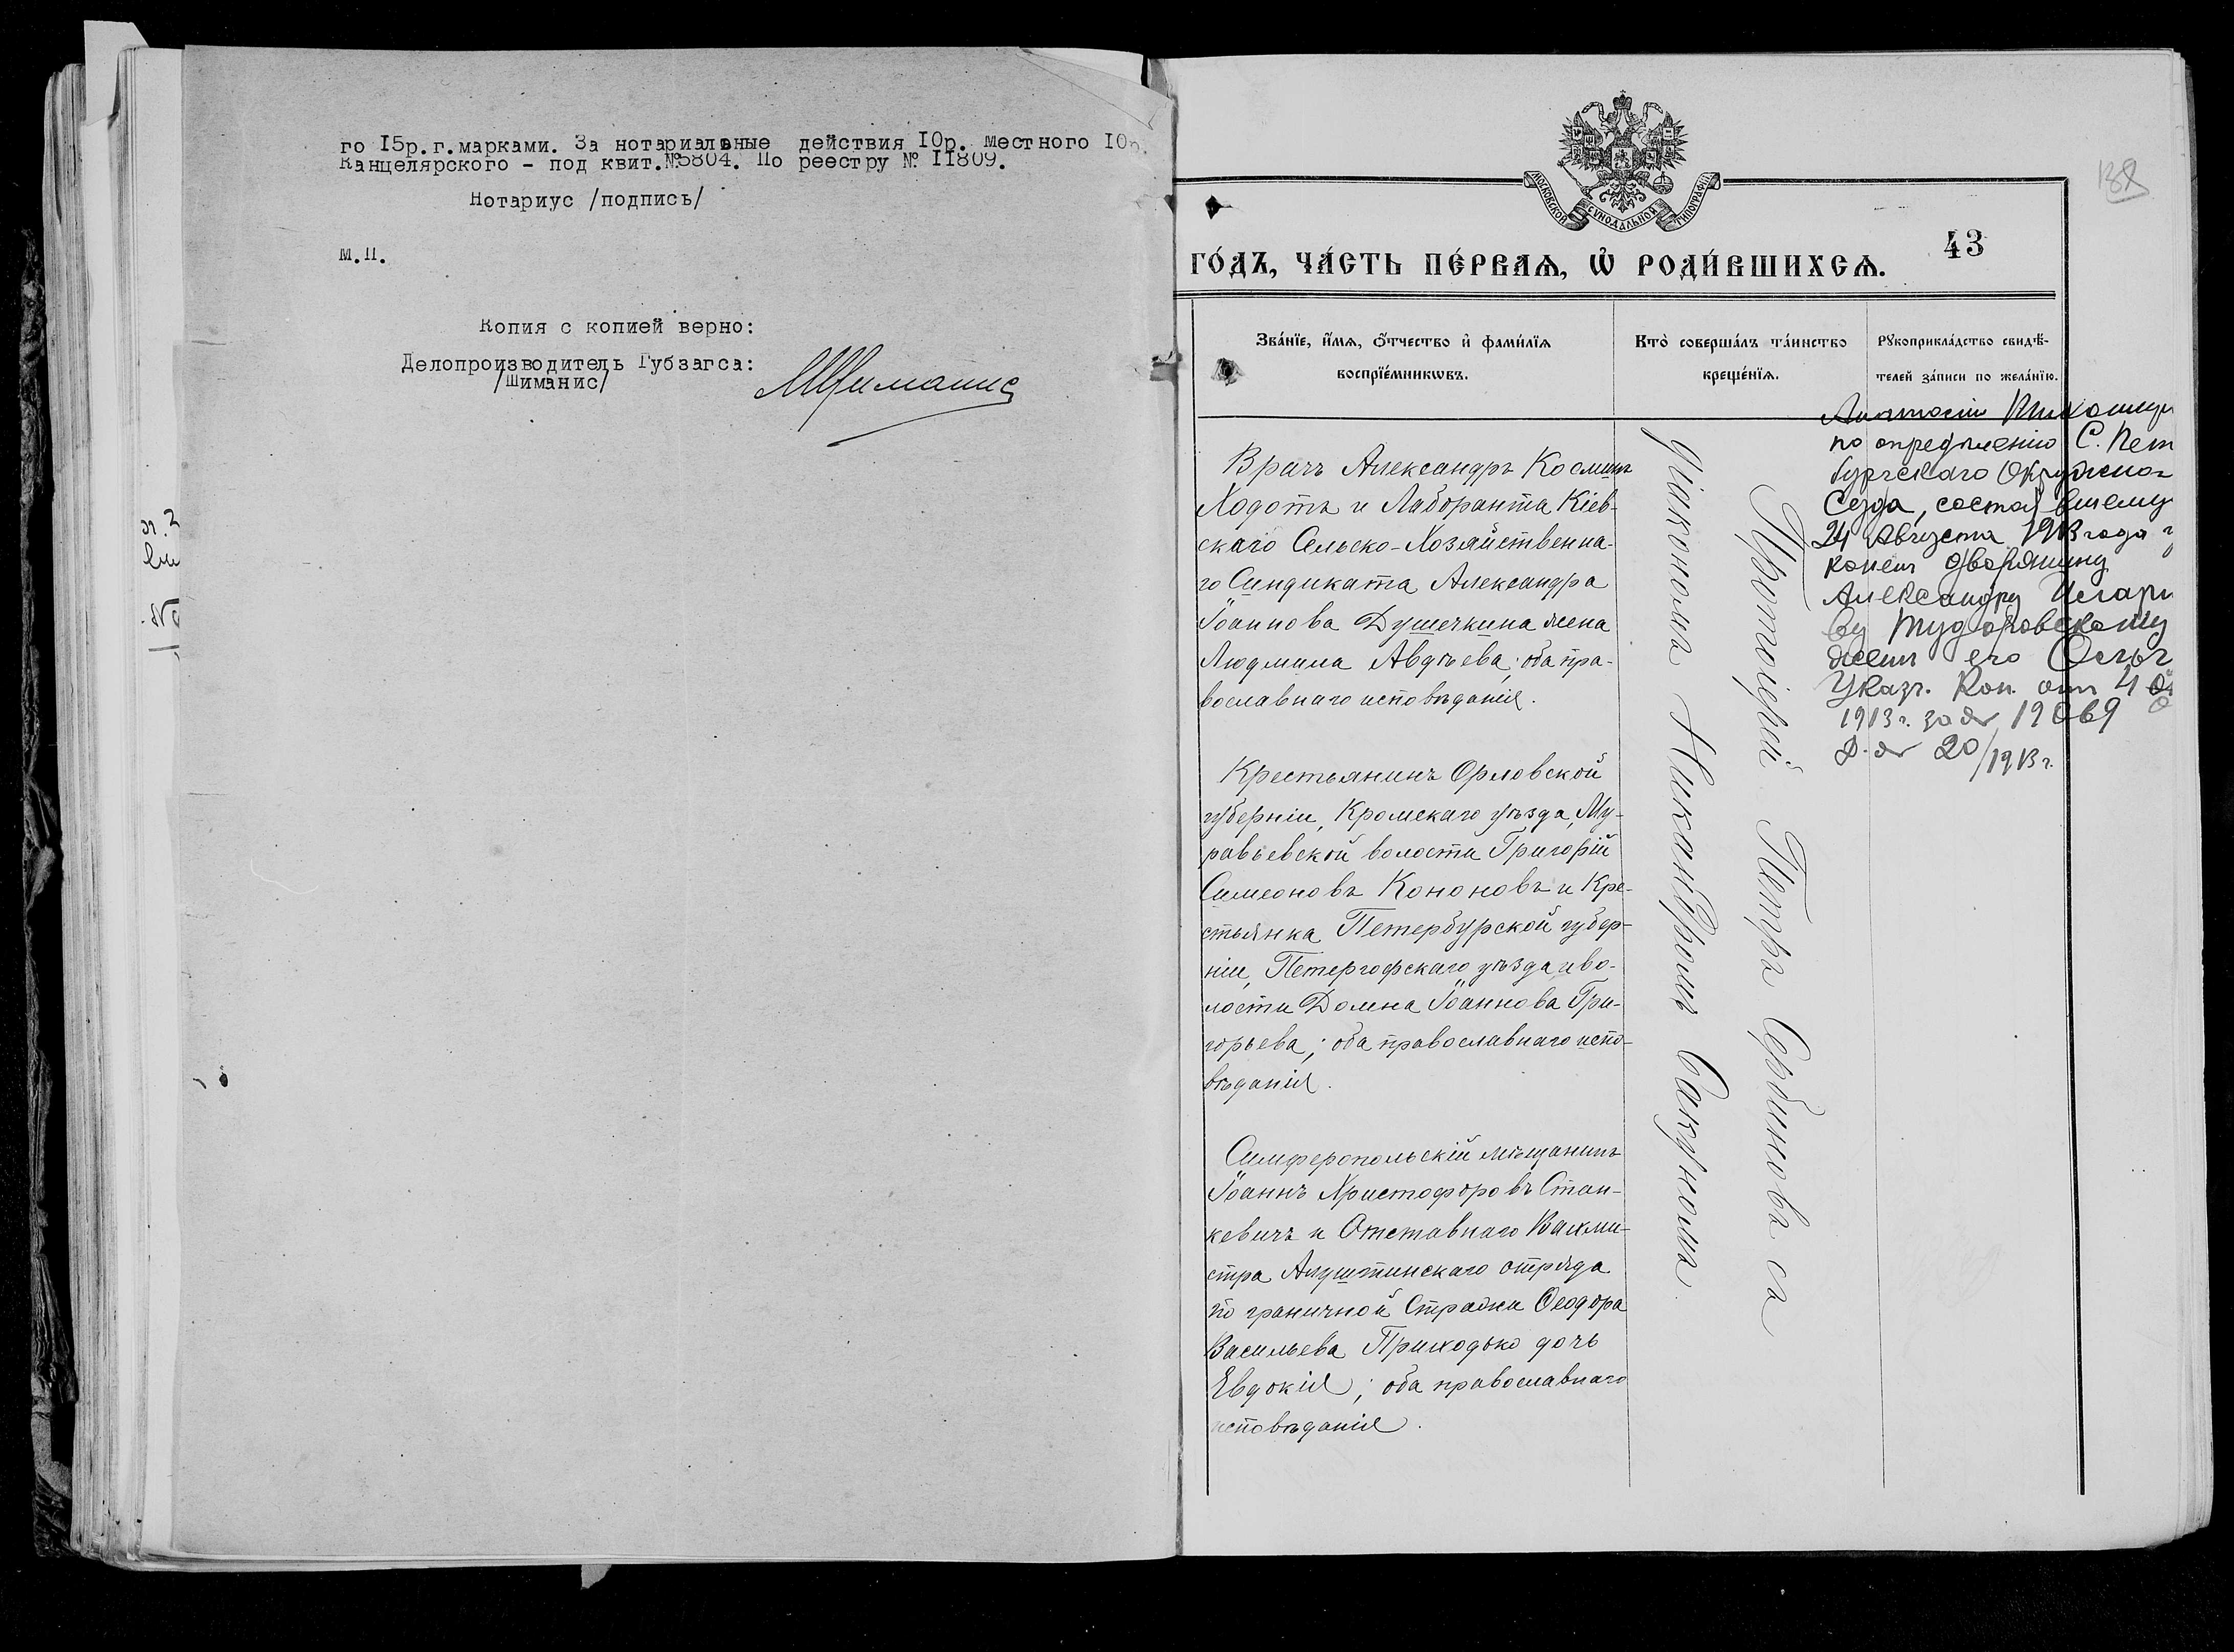 го 15р.г.марками. За нотариальные действия 10р. местного 10р.
Канцелярского - под квит.№5804. По реестру № 11809.
Нотариус /подпись/
М.П.
Копия с копией верно:
Делопроизводитель Губзагса:
/Шиманис/
МШиманис
138
МОСКОВСКОЙ СѴНОДАЛЬНОЙ ТИПОГРАФІИ
43
ГО́ДЪ, ЧА́СТЬ ПЕ́РВАѦ, Ѡ҆ РОДИ́ВШИХСѦ.
Зва́нїе, и҆́мѧ, ѻ҆́тчество и҆ фами́лїѧ
воспрїе́мникѡвъ.
Кто̀ соверша́лъ та́инство
креще́нїѧ.
Рꙋкоприкла́дство свидѣ́-
телей за́писи по жела́нїю.
Врачъ Александръ Косминъ
Ходотъ и Лаборанта Кіев-
скаго Сельско-Хозяйственна-
го Синдиката Александра
Іоаннова Душечкина жена
Людмила Авдѣева; оба пра-
вославнаго исповѣданія.
Крестьянинъ Орловской
губерніи, Кромскаго уѣзда, Му-
равьевской волости Григорій
Симеоновъ Кононовъ и Кре-
стьянка Петербурской губер-
ніи, Петергофскаго уѣзда и во-
лости Домна Іоаннова Гри-
горьева; оба православнаго испо-
вѣданія.
Симферопольскій мѣщанинъ
Іоаннъ Христофоровъ Стан-
кевичъ и Отставнаго Вахми-
стра Алуштинскаго отряда
по граничной Стражи Ѳеодора
Васильева Приходько дочь
Евдокія; оба православнаго
исповѣданія.
Протоіерей Петръ Сербиновъ съ
діакономъ Никаноромъ Сакуномъ
по опредѣленію С. Пет
бургскаго Окружно
Суда, состоявшему
24 Августа 1913 года
дворянину
Александру
Тудоровскому
его
Указъ. Кон. отъ 4
1913 г. за № 19069
Д. № 20/1913 г.